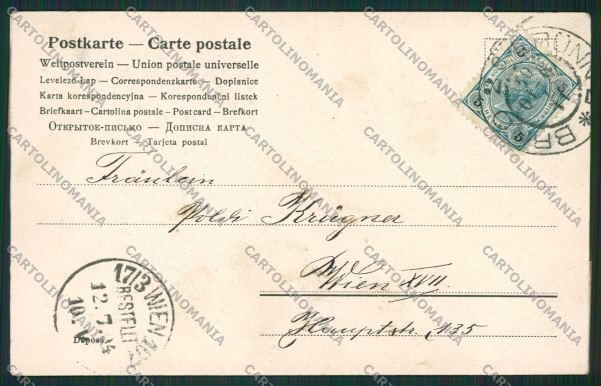 Postkarte — Carte postale
Weltpostverein — Union postale universelle
Levelező-Lap — Correspondenzkarte — Dopisnice
Karta korespondencyjna — Korespondenční listek
Briefkaart – Cartolina postale – Postcard – Brefkort
Открытое-письмо — Дописна карта
Brevkort — Tarjeta postal
BRÜNN
5 5
5 5
Fräulein
Poldi Krügner
Wien XVII
Hauptstr. 135
17/3 WIEN
BESTELLT
12.7
10.V
Déposé.
CARTOLINOMANIA